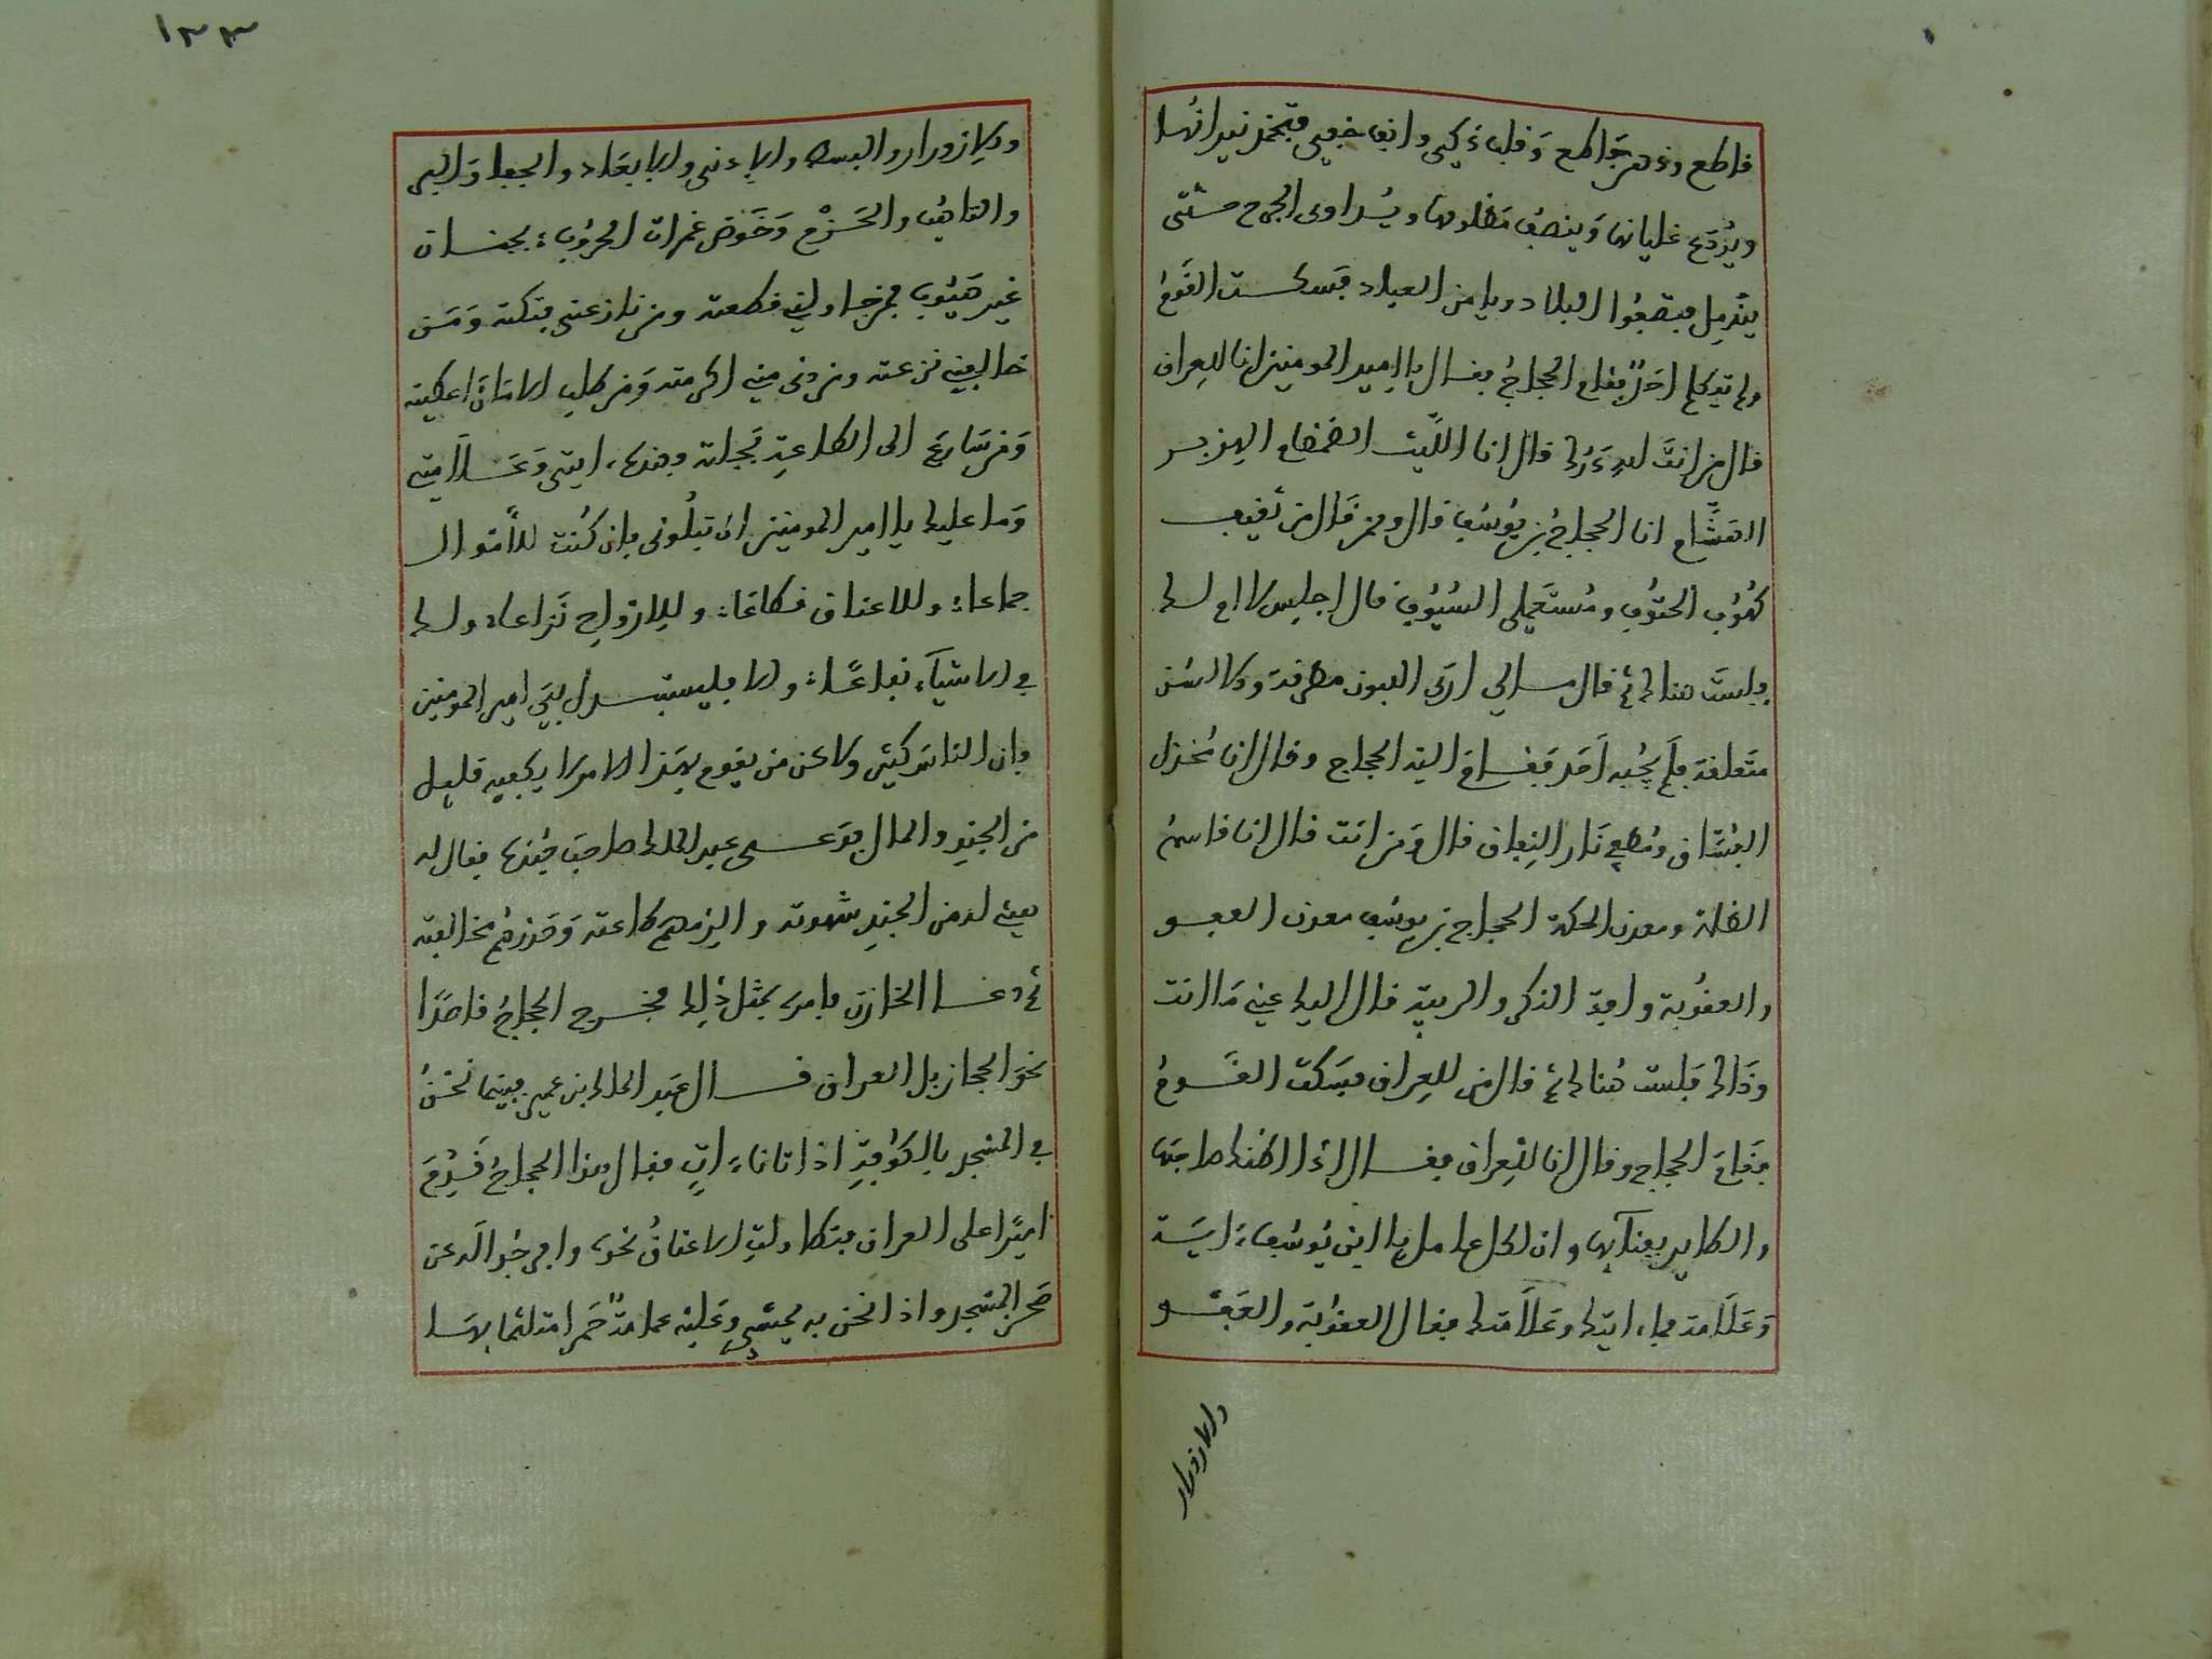 قاطع وذهن جامع وقلب ذكي وانف حمي فتخمد نيرانها
ويردع غليانها وينصف مظلومها ويداوى الجرح حتى
يندمل فتصفوا البلاد ويامن العباد فسكت القوم
ولم يتكلم احد فقام الحجاج فقال يا امير المومنين انا للعراق
قال من انت لله درك قال انا الليث الضمضام الهزبر
الهشام انا الحجاج بن يوسف قال ومن قال من ثقيف
كهوف الحتوف ومستعملي السيوف قال اجلس لا ام لك
فلست هنالك ثم قال مالي ارى العيون مطرقة والالسن
متعلقة فلم يجبه احد فقام اليه الحجاج وقال انا مجندل
الفساق ومطفي نار النفاق قال ومن انت قال انا قاسم
الظلمة ومعدن الحكمة الحجاج بن يوسف معدن العفو
والعقوبة وافة الكفر والريبة قال اليك عني ما انت
وذاك فلست هنالك ثم قال من للعراق فسكت القوم
فقام الحجاج وقال انا للعراق فقال اذا اظنك صاحبها
والظافر بغنائها وان لكل عامل يا ابن يوسف ءاية
وعلامة فما ايتك وعلامتك فقال العقوبة والعفو
والازورار
١٣٣
والازورار والبسط والادنى والابعاد والجفا والبر
والتاهب والحزم وخوض غمرات الحروب بجنان
غير هيوب فمن جادلني قطعته ومن نازعني فتكته ومن
خالفني نزعته ومن دنى مني اكرمته ومن طلب الامان اعطيته
ومن سارع الى الطاعة بجلته وهذه ايتي وعلامتي
وما عليك يا امير المومنين ان تبلوني فان كنت للاموال
جماعا وللاعناق قطاعا وللارواح نزاعا ولك
في الاشياء نفاعا والا فليستبدل بي امير المومنين
فان الناس كثير ولاكن من يقوم بهذا الامر لا يكفيه قليل
من الجند والمال فدعى عبد الملك صاحب جنده فقال له
هيئ له من الجند شهوته والزمهم طاعته وحذرهم مخالفته
ثم دعا الخازن فامره بمثل ذلك فخرج الحجاج قاصدا
نحو الحجاز بل العراق قال عبد الملك ابن عمير فبينما نحن
في المسجد بالكوفة اذ اتانا ءات فقال هذا الحجاج قدم
اميرا على العراق فتطاولت الاعناق نحوه وافرجوا له عن
صحن المسجد واذا نحن به يمشي وعليه عمامة حمرا متلثما بها